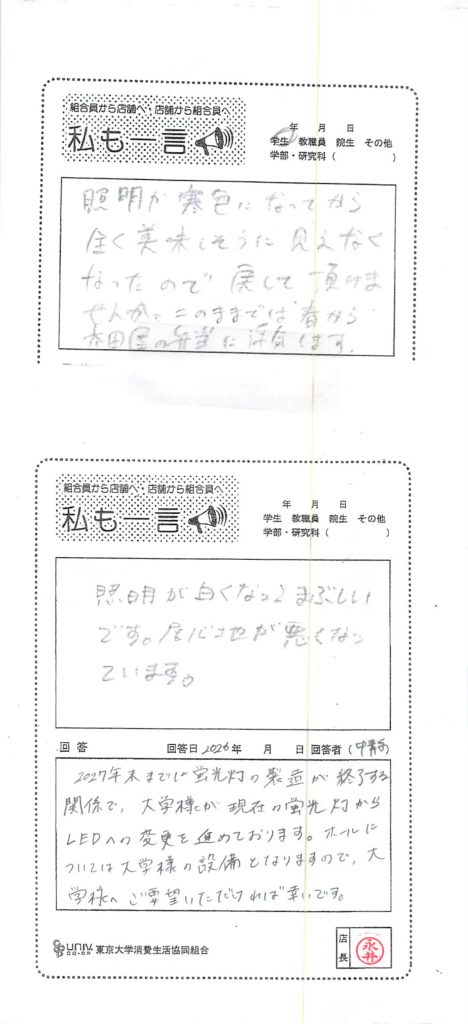 組合員から店舗へ・店舗から組合員へ
私も一言
年 月 日
学生 教職員 院生 その他
学部・研究科( )
照明が寒色になってから
全く美味しそうに見えなく
なったので戻して頂けま
せんか。このままでは春から
本田屋の弁当に浮気します。
組合員から店舗へ・店舗から組合員へ
私も一言
年 月 日
学生 教職員 院生 その他
学部・研究科( )
照明が白くなってまぶしい
です。居心地が悪くなっ
ています。
回答 回答日2026年 月 日 回答者(中青木)
2027年末までに蛍光灯の製造が終了する
関係で、大学様が現在の蛍光灯から
LEDへの変更を進めております。ホールに
ついては大学様の設備となりますので、大
学様へご要望いただければ幸いです。
UNIV. CO-OP 東京大学消費生活協同組合
店長 永井